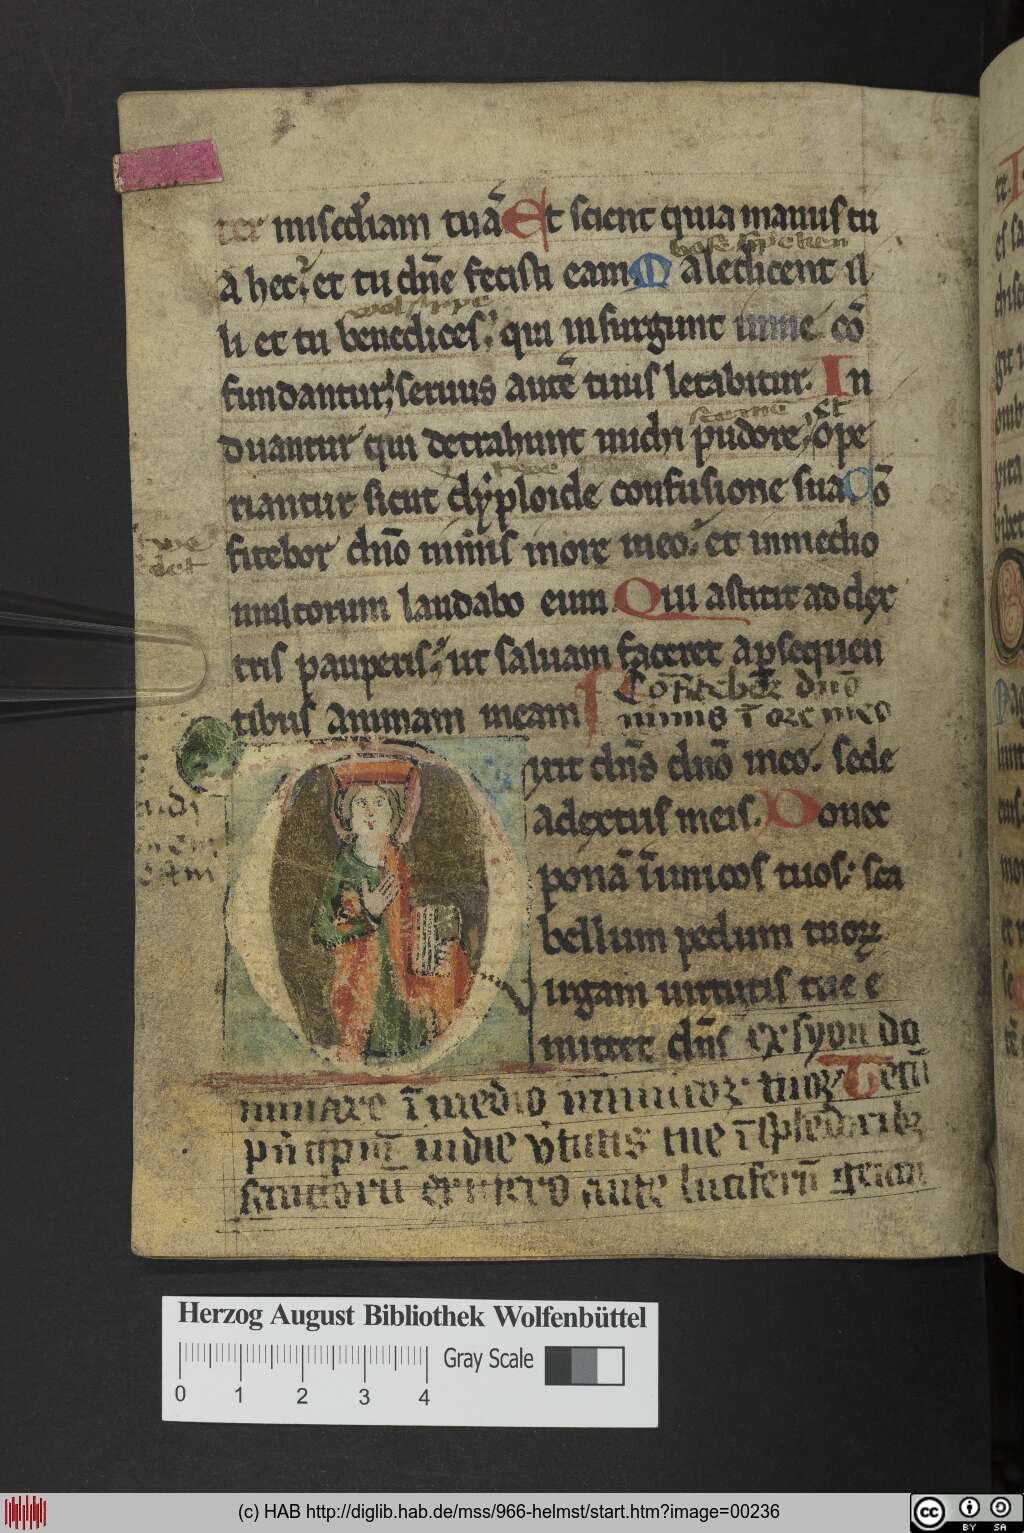 ter misĉdiam tuā Et scient quia manus tu
bose spreken
a hec. et tu dn̄e fecisti eam Maledicent il
li et tu benedices. qui insurgunt inme cō
fundantur. seruus autē tuus letabitur. In
duantur qui detrahunt michi pudore, et ope
riantur sicut dyploide confusione sua Cō
fitebor dn̄o nimis inore meo. et inmedio
multorum laudabo eum. Qui astitit ad dex
tris pauperis. ut saluam faceret apsequen
tibus animam meam
Cōfitebor dn̄o
nimis ī ore meo
ixit dn̄s dn̄o meo. sede
adextris meis. Donec
ponā īimicos tuos. sca
bellum pedum tuoꝝ
irgam uirtutis tue e
mittet dn̄s ex syon do
minare ī medio inimicoꝝ tuoꝝ Tecū
sanctorū ex utero ante luciferū genui
Herzog August Bibliothek Wolfenbüttel
Gray Scale
0 1 2 3 4
(c) HAB http://diglib.hab.de/mss/966-helmst/start.htm?image=00236
cc BY SA